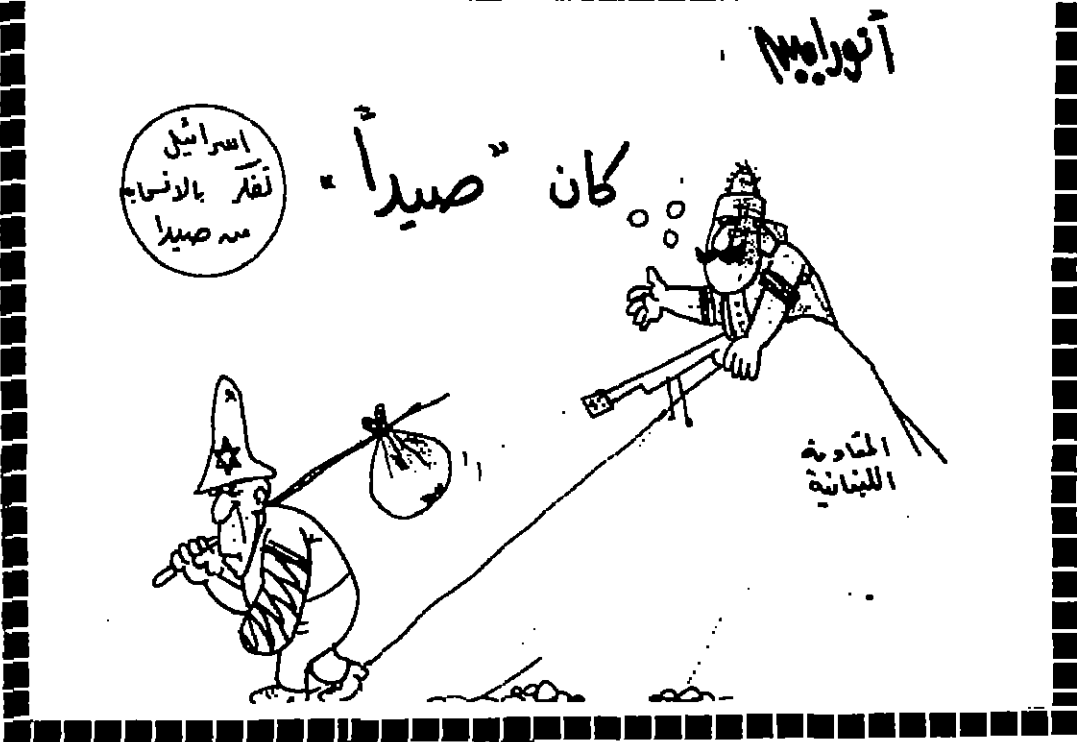 إسرائيل
تفكر بالانسحاب
من صيدا
كان "صيداً"
المقاومة
اللبنانية